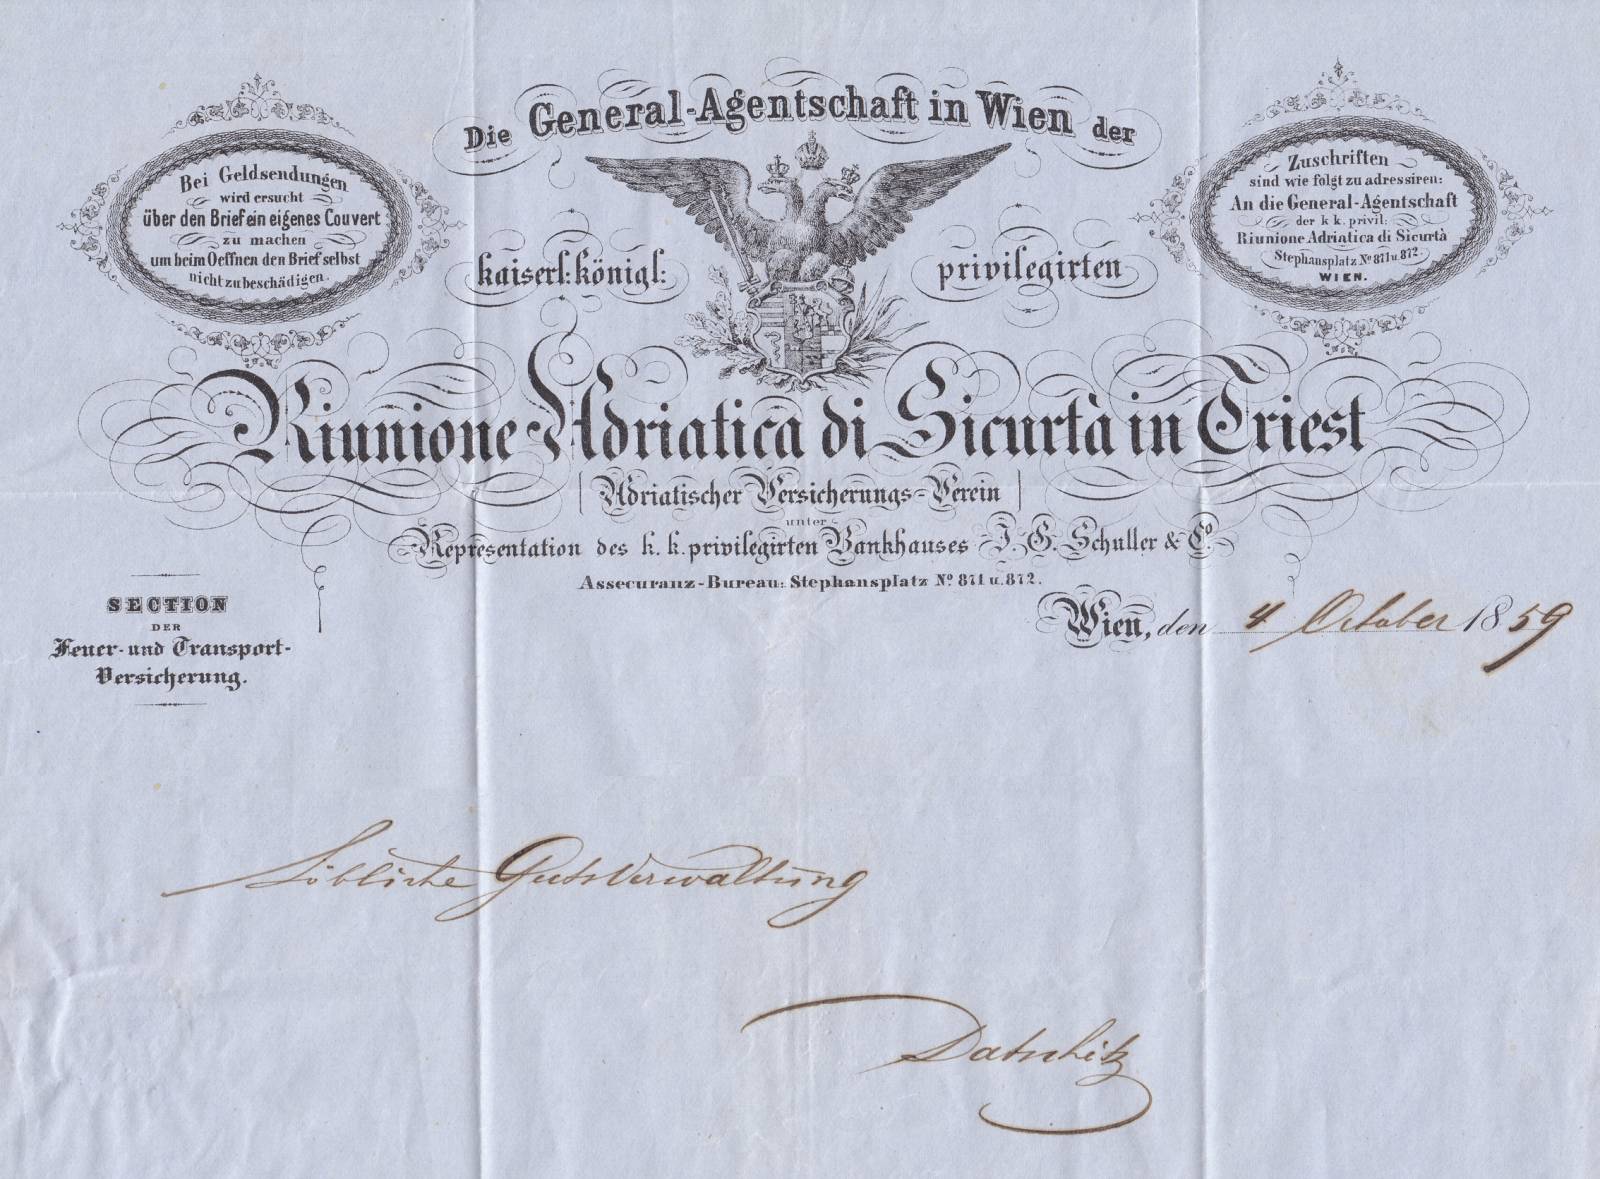 Die General-Agentschaft in Wien der
Bei Geldsendungen
wird ersucht
über den Brief ein eigenes Couvert
zu machen
um beim Oeffnen den Brief selbst
nicht zu beschädigen.
Zuschriften
sind wie folgt zu adressiren:
An die General-Agentschaft
der k k. privil:
Riunione Adriatica di Sicurtà
Stephansplatz No 871 u. 872.
WIEN.
kaiserl: königl: privilegirten
Riunione Adriatica di Sicurtà in Triest
[Adriatischer Versicherungs-Verein]
unter
Representation des k. k. privilegirten Bankhauses J. G. Schuller & Co.
Assecuranz-Bureau: Stephansplatz No. 871 u. 872.
SECTION
DER
Feuer- und Transport-
Versicherung.
Wien, den 4 October 1859
Löbliche Gutsverwaltung
Datschitz